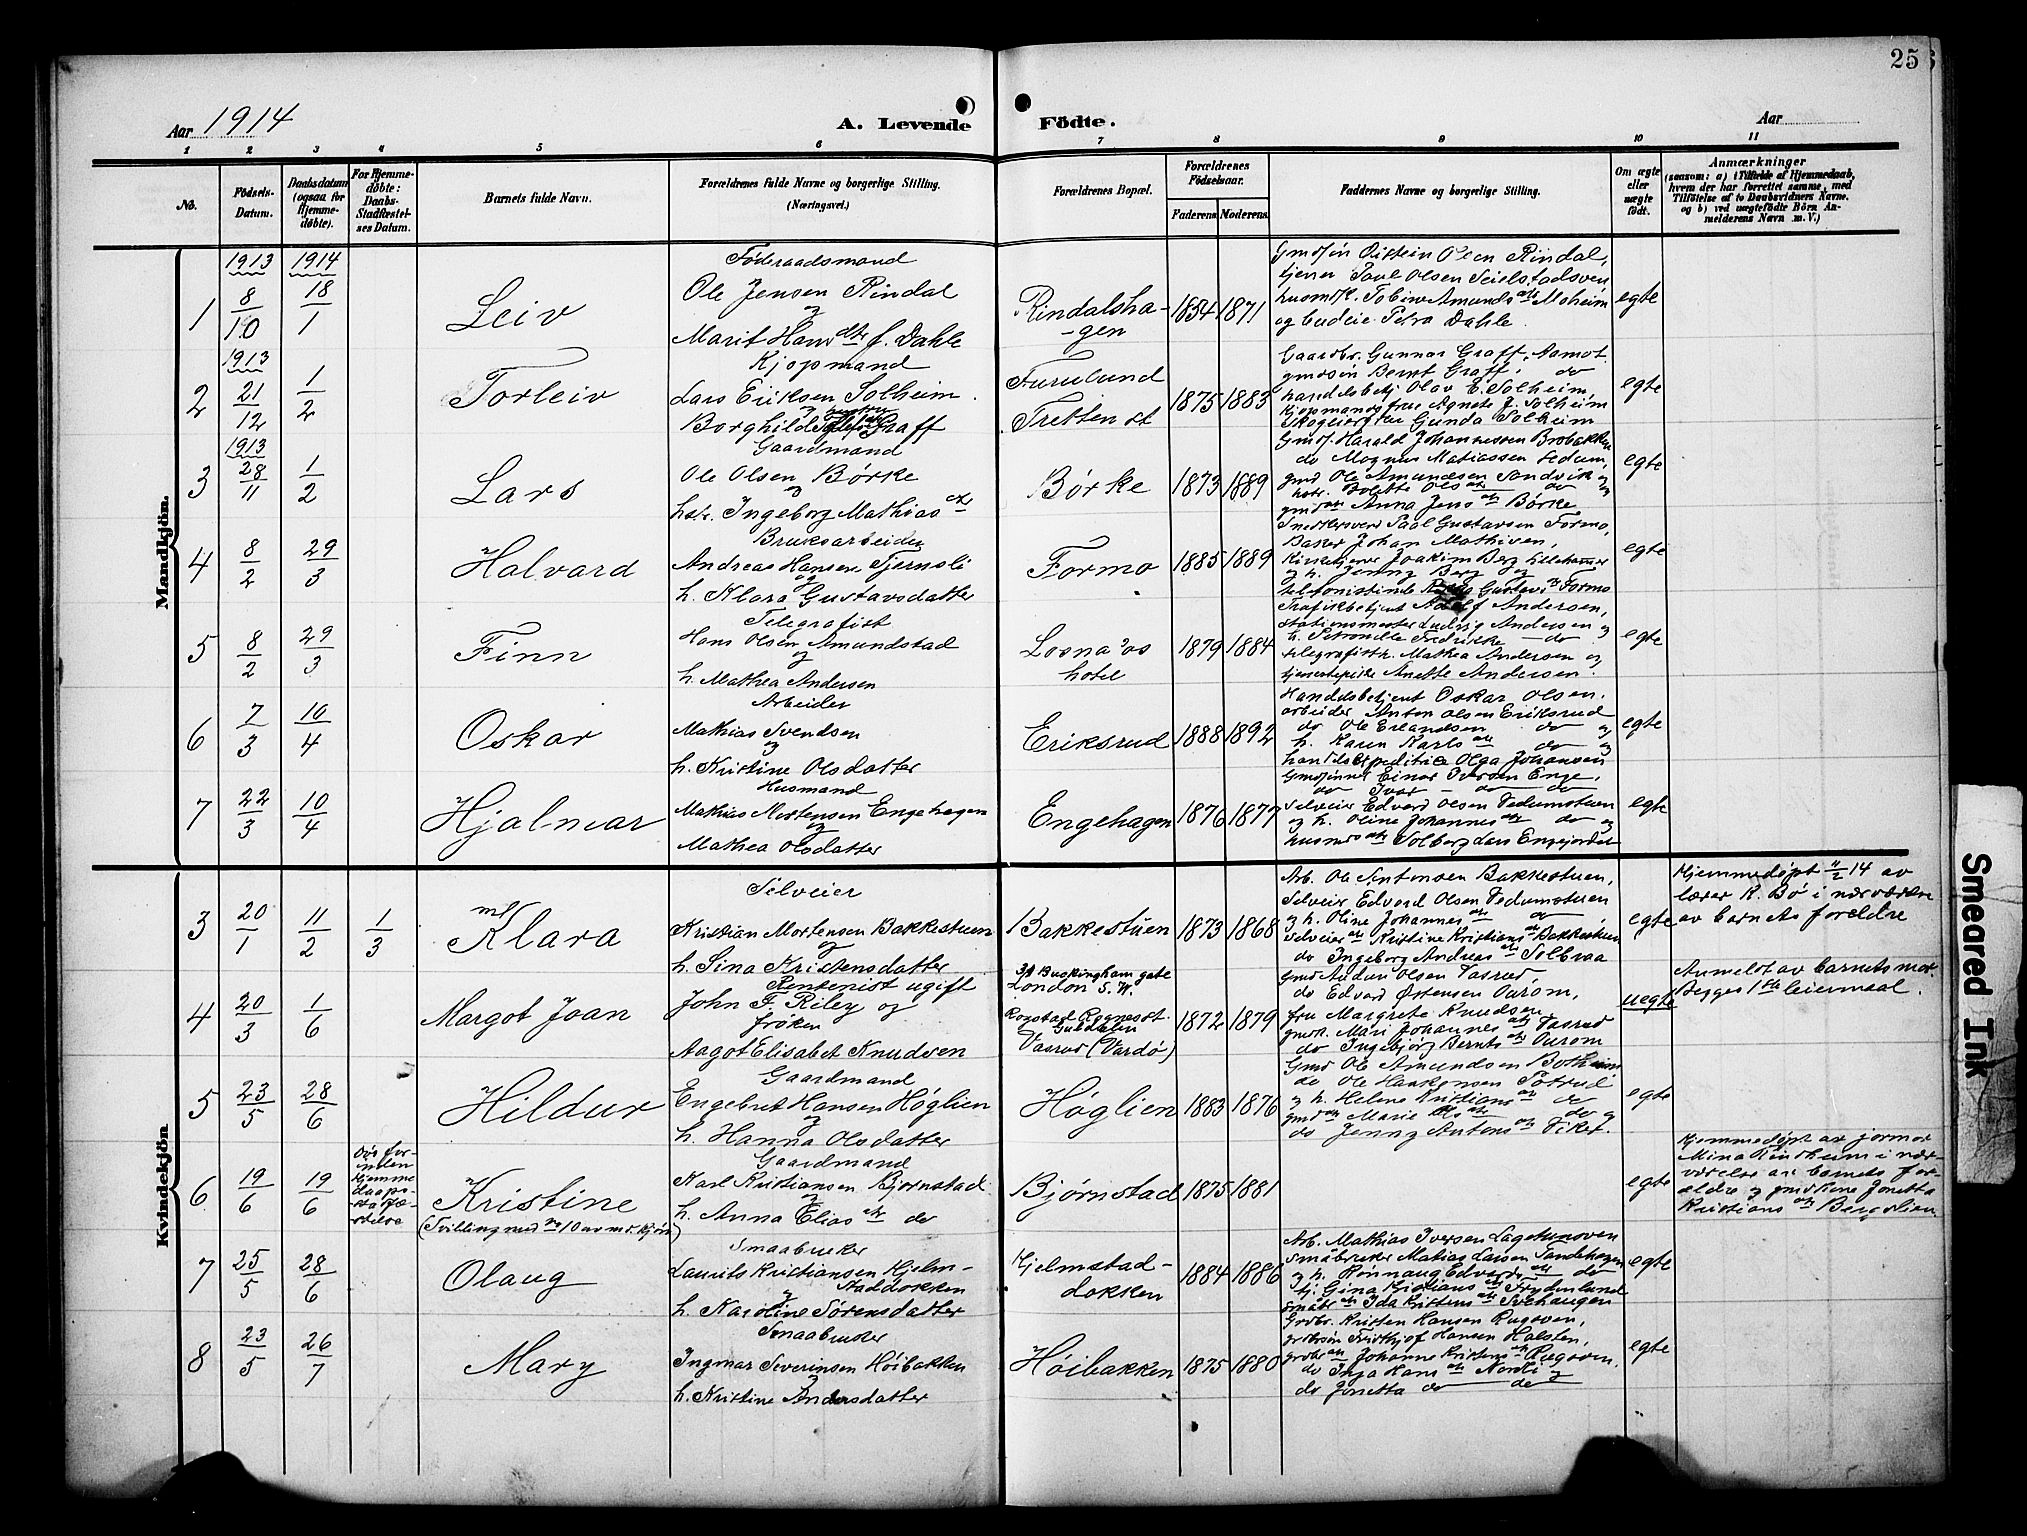 25
Aar 1914
A. Levende Födte.
Aar
1 2 3 4 5 6 7 8 9 10 11
No.
Födsels-Datum.
Daabsdatum (ogsaa for Hjemmedöbte).
For Hjemmedöbte: Daabs-Stadfæstelses Datum.
Barnets fulde Navn.
Forældrenes fulde Navne og borgerlige Stilling.
(Næringsvei.)
Forældrenes Bopæl.
Forældrenes Födselsaar.
Faderens. Moderens.
Faddernes Navne og borgerlige Stilling.
Om ægte eller uægte födt.
Anmærkninger
(saasom: a) i Tilfælde af Hjemmedaab, hvem der har forrettet samme, med Tilföielse af to Daabsvidners Navne. og b) ved uægtefödte Börn Anmelderens Navn m. V.)
Mandkjön.
1
1913 8/10
1914 18/1
Leiv
Föderaadsmand
Ole Jensen Rindal
og
Marit Hansdtr f. Dahle
Rindalsha-
-gen
1834 1871
Gmdsön Øistein Olsen Rindal,
tjener Paul Olsen Seielstadsven
husmdk. Tobine Amundsdtr Moheim
og budeie Petra Dahle.
egte
2
1913 21/12
1/2
Torleiv
Kjøpmand
Lars Eriksen Solheim
Borghild Graff
Furulund
Tretten st
1875 1883
Gaardbr. Gunnar Graff, Aamot.
gmdsön Bernt Graff, do
handelsbetj Olav E. Solheim,
Kjøpmandsfrue Agnete J. Solheim
Gunda Solheim
egte
3
1913 28/11
1/2
Lars
Gaardmand
Ole Olsen Børke
og
hstr. Ingeborg Mathiasdtr
Børke
1873 1889
Gmds. Harald Johannessen Brobakken
do Magnus Matiassen Sedum,
gmd Ole Amundsen Sandvik og
hstr. Bolette Olsdtr do og
gmdatr Anna Jensdtr Børke
egte
4
8/2
29/3
Halvard
Bruksarbeider
Andreas Hansen Tjernsli
og
h. Klara Gustavsdatter
Formo
1885 1889
Snedkersvend Paal Gustavsen Formo,
Baker Johan Mathisen,
Kirketjener Joakim Berg Lillehammer
og h. Jenny Berg og
telefonistinde Gustavs Formo
egte
5
8/2
29/3
Finn
Telegrafist
Hans Olsen Amundstad
og
h. Mathea Andersen
Losnaos
hotel
1879 1884
Trafikbetjent Adolf Andersen,
stationsmester Ludvig Andersen og
h. Petronelle Fredrikke do
telegrafistk. Mathea Andersen og
tjenestepike Anette Andersen.
egte
6
7/3
10/4
Oskar
Arbeider
Mathias Svendsen
og
h. Kristine Olsdatter
Eriksrud
1888 1892
Handelsbetjent Oskar Olsen.
arbeider Anton Olsen Eriksrud
do Ole Erlandsen do og
h. Karen Karlsdtr do og
handelsexpeditrice Olga Johansen
egte
7
22/3
10/4
Hjalmar
Husmand
Mathias Mortensen Engehagen
og
Mathea Olsdatter
Engehagen
1876 1877
Gmdsönner Einar Iversen Enge,
do Ivar do do
Selveier Edvard Olsen Vedumstuen
og h. Oline Johannesdtr do og
husmdsdtr Solberg Lars Engejordet
egte
Kvindekjön
3
20/1
11/2
1/3
Klara
Selveier
Kristian Mortensen Bakkestuen
og
h. Sina Kristensdatter
Bakkestuen
1873 1868
Arb. Ole Sentensen Bakkestuen,
Selveir Edvard Olsen Vedumstuen
og h. Oline Johannesdtr do
selveierdtr Kristine Kristiansdtr Bakkestuen
do Ingeborg Andreasdtr Solbraa
egte
Hjemmedøpt 11/2 14 av
lærer K. Bø i nærværelse
av barnets forældre
4
20/3
1/6
Margot Joan
Rentenist ugift
John F. Riley og
frøken
Aagot Elisabet Knudsen
31 Buckingham gate
London S.W.
Guldalen
Vasrud (Vardø)
1872 1879
Gmd Anders Olsen Vasrud
do Edvard Østensen Aurom,
fru Margrete Knudsen,
gmdk. Mari Johannesdtr Vasrud
do Ingebjørg Berntsdtr Aurom
uegte
Anmeldt av barnets mor.
Begges 1ste leiermaal.
5
23/5
28/6
Hildur
Gaardmand
Engebret Hansen Høglien
og
h. Hanna Olsdatter
Høglien
1883 1876
Gmd Ole Amundsen Botheim
do Ole Haakensen Sotrud
og h. Helene Kristiansdtr do
gmdatr Marie Olsdtr do og
do Jenny Antonsdtr Fiket.
egte
6
19/6
19/6
Kristine
(Tvilling med no 10 av m. kjøn)
Gaardmand
Karl Kristiansen Bjørnstad
og
h. Anna Eliasdtr do
Bjørnstad
1875 1881
egte
Hjemmedøpt av jormor
Mina Rindheim i nær-
værelse av barnets for-
ældre og gmdkone Jonetta
Kristiansdtr Bergslien.
7
25/5
28/6
Olaug
Smaabruker
Laurits Kristiansen Hjelm-
staddokken
og
h. Karoline Sörensdatter
Hjelmstad-
dokken
1884 1886
Arb. Mathias Iversen Lagetunoven
Småbruker Matias Larsen Sandehagen
og h. Rønnaug Edvardsdtr do
tj. Gina Kristiansdtr Frydenlund
småbrdtr Ida Kristensdtr Svehaugen
egte
8
23/5
26/7
Mary
Smaabruker
Ingmar Severinsen Høibakken
og
h. Kristine Andersdatter
Høibakken
1875 1880
Grdbr. Kristen Hansen Rugoven,
grdbrsön Fridthjof Hansen Holsten,
grdbrdtr Johanne Kristensdtr Rugoven
do Inga Hansdtr Nordli og
do Jonetta do do
egte
Smeared Ink